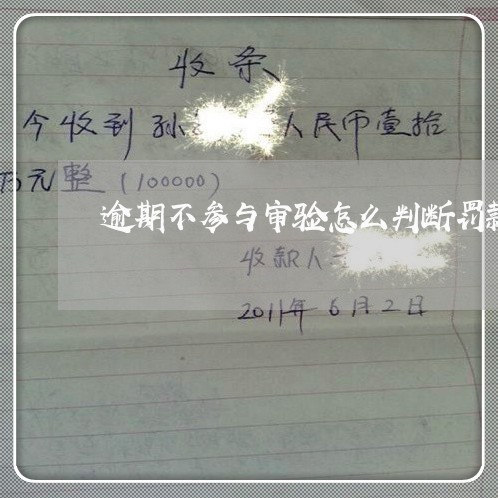 收条
今收到孙 人民币壹拾
万元整(100000)
逾期不参与审验怎么判断罚款
收款人
2011年6月2日